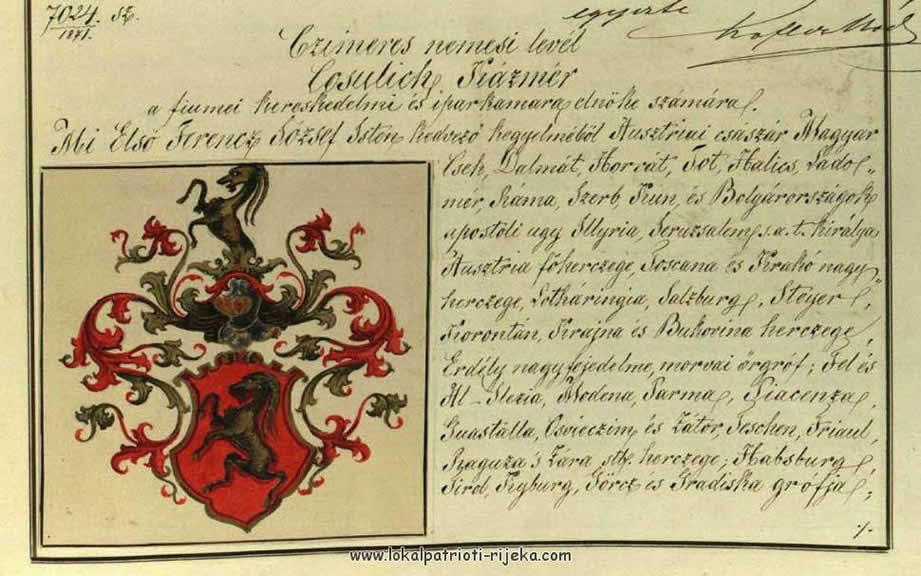 7024. sz.
1871.
egyezte
Czimeres nemesi levél
Cosulich Kázmér
a fiumei kereskedelmi és iparkamara elnöke számára.
Mi Első Ferencz József Isten kedvező kegyelméből Ausztriai császár Magyar
Cseh, Dalmát, Horvát, Tót, Halics, Lodo„
mér, Ráma, Szerb, Kún, és Bolgárországok
apostoli ugy Illyria, Jeruzsalem, s.a.t. királya
Ausztria főherczege, Toscana és Krakó nagy„
herczege, Lotháringia, Salzburg, Steyer,
Korontán, Krajna és Bukovina herczege,
Erdély nagyfejedelme, morvai őrgróf; Fel és
Al-Slezia, Modena, Parma, Piacenza,
Guastalla, Osvieczim és Zátor, Teschen, Friaul,
Raguza s Zára, stb. herczege; Habsburg,
Tirol, Kyburg, Görcz és Gradiska grófja,
./.
www.lokalpatrioti-rijeka.com